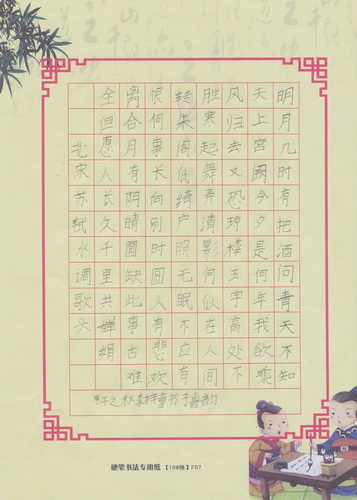 明月几时有把酒问青天不知
天上宫阙今夕是何年我欲乘
风归去又恐琼楼玉宇高处不
胜寒起舞弄清影何似在人间
转朱阁低绮户照无眠不应有
恨何事长向别时圆人有悲欢
离合月有阴晴圆缺此事古难
全但愿人长久千里共婵娟
北宋苏轼水调歌头
午之秋李梓童书于鲁韵
硬笔书法专用纸【108格】F07